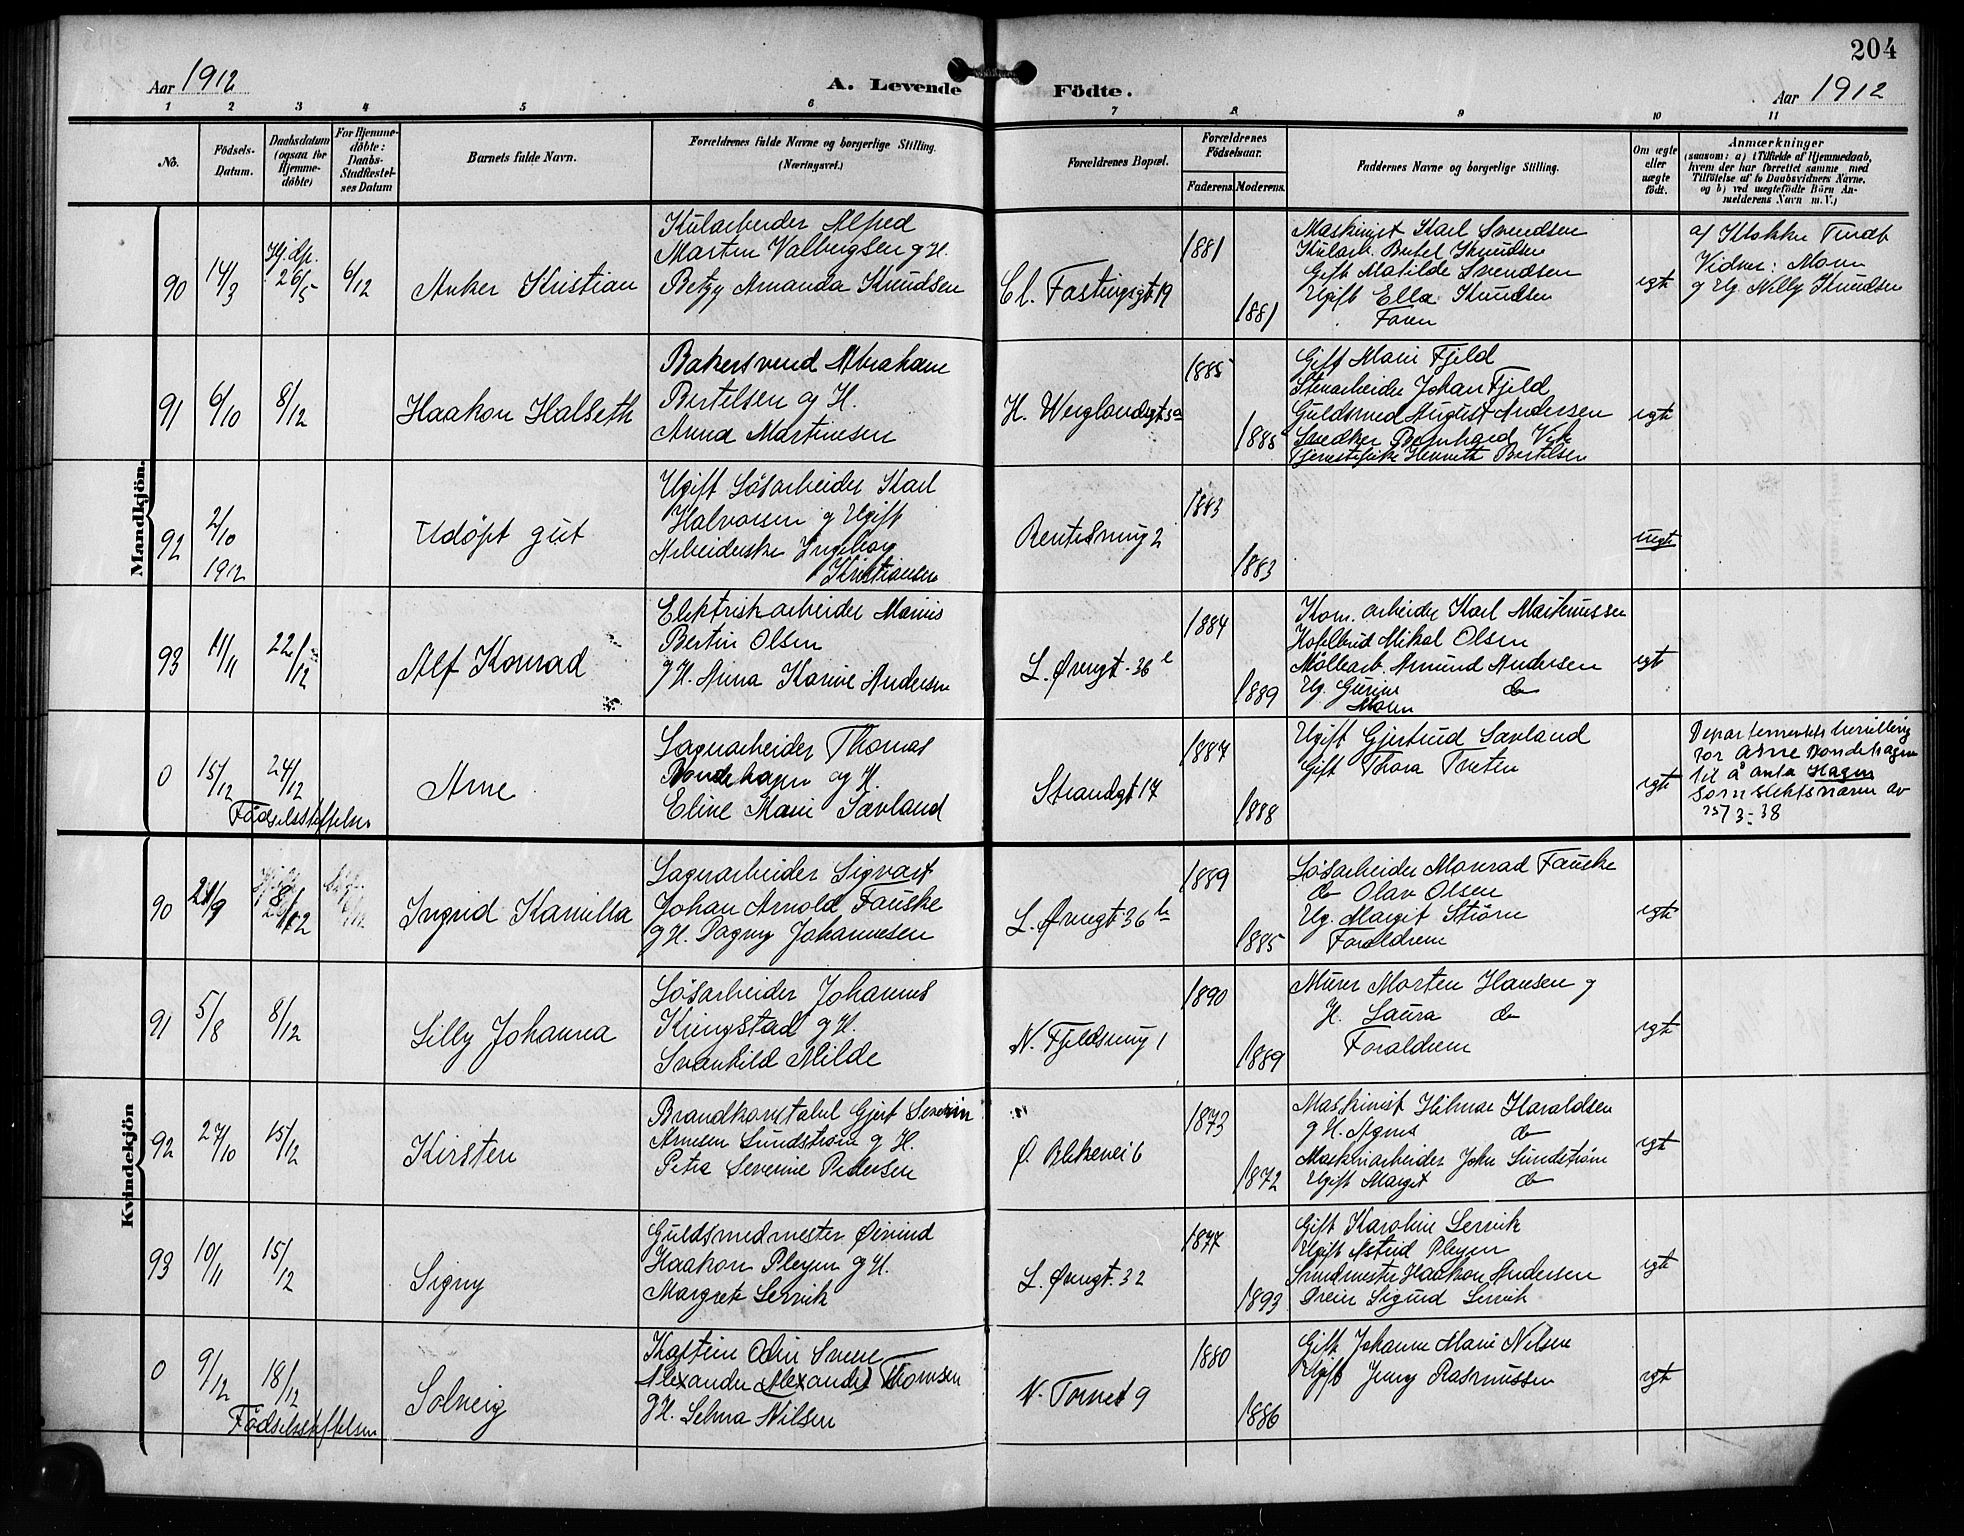 204
Aar 1912
A. Levende Födte.
Aar 1912
1 2 3 4 5 6 7 8 9 10 11
No.
Födsels-Datum.
Daabsdatum (ogsaa for Hjemme-döbte)
For Hjemme-döbte: Daabs-Stadfæstel-ses Datum
Barnets fulde Navn.
Forældrenes fulde Navne og borgerlige Stilling.
(Næringsvei.)
Forældrenes Bopæl.
Forældrenes Födselsaar.
Faderens. Moderens.
Faddernes Navne og borgerlige Stilling.
Om ægte eller uægte födt.
Anmærkninger
(saasom: a) i Tilfælde af Hjemmedaab,
hvem der har forrettet samme med
Tilföielse af to Daabsvidners Navne,
og b) ved uægtefödte Börn An-
melderens Navn m. V.)
Mandkjön.
90 14/3 Hj.dp. 26/5 6/12 Anker Kristian
Kularbeider Alfred
Martin Valbergsen g H.
Betzy Amanda Knudsen
Cl. Fastingsgt 19
1881
1881
Maskinist Karl Svendsen
Kularb. Bertel Knudsen
Gift Matilde Svendsen
Ugift Ella Knudsen
Faren
egte
af Klokker
Vidner: Moren
g Ug. Nelly Knudsen
91 6/10 8/12 Haakon Halseth
Bakersvend Abraham
Bertelsen og H.
Anna Martinsen
H. Werglandsgt 5a
1885
1885
Gift Marie Fjeld
Stenarbeider Johan Fjeld
Guldsmed August Andersen
Snedker Bernhard Vik
Tjenestepike Henrietth Bertelsen
egte
92 2/10 1912 Udöpt gut
Ugift Løsarbeider Karl
Halvorsen g Ugift
Arbeiderske Ingeborg
Kristiansen
Rentesmug 2
1883
1883
uegte
93 11/11 22/12 Alf Konrad
Elektriskarbeider Marius
Bertin Olsen
g H. Anna Karine Andersen
L. Øvregt. 36
1884
1889
Kom. arbeider Karl Martinussen
Mikal Olsen
Møllearb. Amund Andersen
Ug. Gurine do
Moren
egte
0 15/12 24/12 Arne
Födselsstiftelsen
Lagerarbeider Thomas
Bondehagen og H.
Eline Marie Søvland
Strandgt 17
1887
1888
Ugift Gjertrud Søvland
Gift Thora Tveten
egte
Departementsbevilling
for Arne Bondehagen
til å anta Hagen
som slektsnavn av
25/3-38
Kvindekjön
90 21/9 8/12 Ingrid Kamilla
Lagerarbeider Sigvart
Johan Arnold Fauske
g H. Dagny Johannesen
L. Øvregt. 36
1889
1885
Løsarbeider Monrad Fauske
do Olav Olsen
Ug. Margit Strøm
Forældrene
egte
91 5/8 8/12 Lilly Johanna
Løsarbeider Johannes
Kringstad g H.
Svanhild Milde
N. Fjeldsmug 1
1890
1889
Murer Morten Hansen g
H. Laura do
Forældrene
egte
92 27/10 15/12 Kirsten
Brandkonstabel Gjert Severin
Arnesen Sundstrøm g H.
Petra Severine Pedersen
Ø. Blekevei 6
1873
1872
Maskinist Hilmar Haraldsen
g H. Agnes do
Maskinarbeider John Sundstrøm
Ugift Margit do
egte
93 10/11 15/12 Signy
Guldsmedmester Øivind
Haakon Pleym g H.
Margrete Lervik
L. Øvregt. 32
1877
1893
Gift Karoline Lervik
Ugift Astrid Pleym
Smedmester Haakon Andersen
Dreier Sigurd Lervik
egte
0 9/12 18/12 Solveig
Födselsstiftelsen
Kaptein Odin Sverre
Alexander (Alexander) Thomsen
g H. Selma Nilsen
N. Tornet 9
1880
1886
Gift Johanne Marie Nilsen
Ugift Jenny Rasmussen
egte